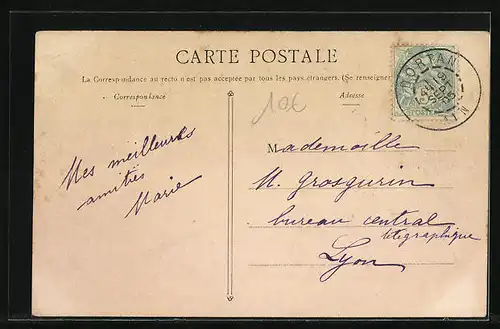 CARTE POSTALE
La Correspondance au recto n'est pas acceptée par tous les pays étrangers. (Se renseigner
Correspondance
Adresse
10€
MORTAN
AIN
Mes meilleures
amitiés
Marie
Mademoiselle
M. Grosgurin
bureau central
télégraphique
Lyon